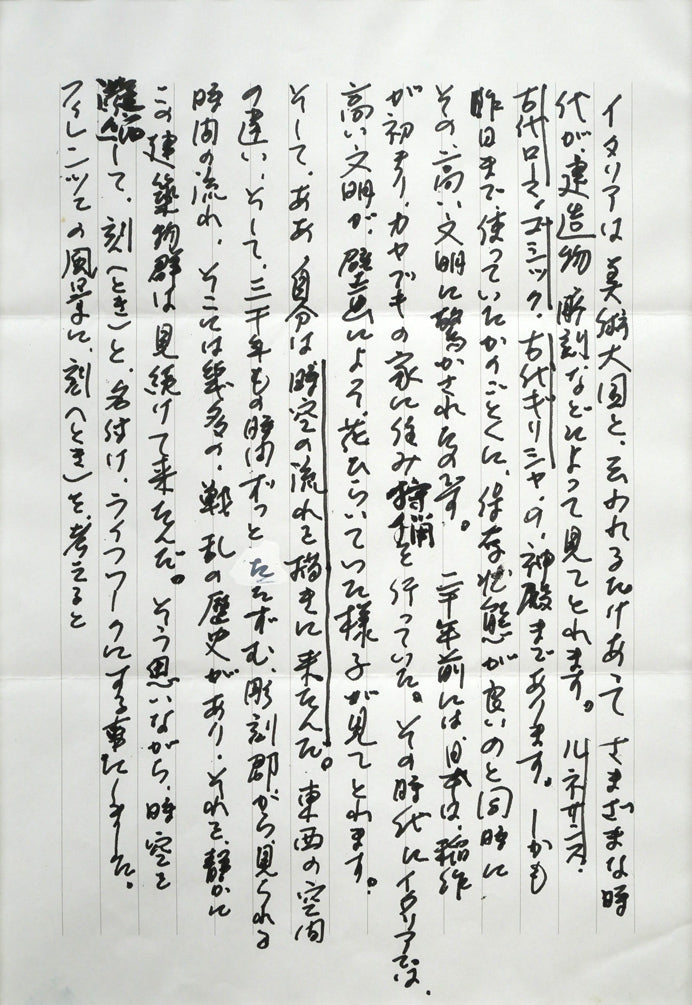 イタリアは美術大国と、云われるだけあって さまざまな時
代が、建造物 彫刻などによって見てとれます。ルネサンス・
古代ローマ、ゴシック・古代ギリシャ、の、神殿まであります。しかも
昨日まで、使っていたかのごとくに、保存状態が良いのと同時に
その、高い文明に驚かされたのです。 二千年前には、日本は、稲作
が初まり、カヤブキの家に住み 狩猟を行っていた。その時代にイタリアでは、
高い文明が、壁画によって、花ひらいていた様子が見てとれます。
そして、ああ、自分は時空の流れを描きに来たんだ。東西の空間
の違い、そして、二千年もの時間 ずっと たたずむ、彫刻郡から、見くれる
時間の流れ、そこには幾多の、戦乱の歴史があり、それを、静かに
この建築物群は見続けて来たんだ。そう思いながら、時空を
して、刻(とき)と、名付け、ライフワークにする事にしました。
フィレンツェの風景に、刻(とき)を、考えると